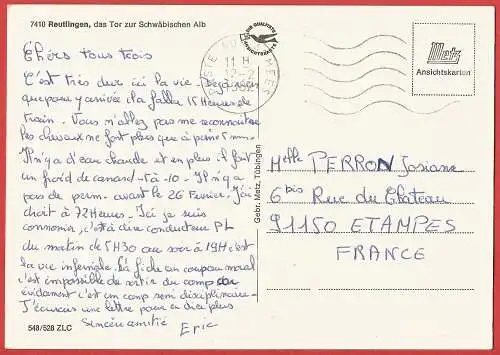 7410 Reutlingen, das Tor zur Schwäbischen Alb
Chers tous trois
C'est très dur ici la vie. Déjà rien
que pour y arrivée il a fallu 15 Heures de
train. Vous n'allez pas me reconnaître
les cheveux ne font plus que à peine 5 mm.
Il n'y a d'eau chaude et en plus il fait
un froid de canard -5 à -10 - Il n'y a
pas de perm. avant le 26 Fevrier. J'ai
droit à 72 Heures. Ici je suis
consonni, c'est à dire conducteur PL
du matin de 5H30 au soir à 19H c'est
la vie infernale. Ça fiche un coup au moral
c'est impossible de sortir du camp
évidament c'est un camp semi disciplinaire.
J'écrirais une lettre pour en dire plus
Sincère amitié
Eric
548/528 ZLC
Gebr. Metz, Tübingen
POSTE AUX ARMEES
11 H
12-2
Metz
Ansichtskarten
Melle PERRON Josiane
6 bis Rue du Chateau
91150 ETAMPES
FRANCE